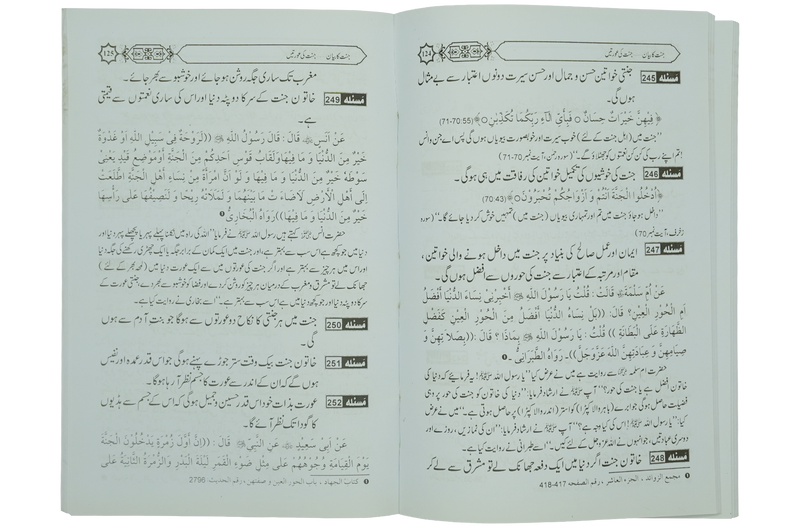 124
جنت کا بیان ... جنت کی عورتیں
مسئله 245 جنتی خواتین حسن و جمال اور حسن سیرت دونوں اعتبار سے بے مثال
ہوں گی۔
﴿ فِيهِنَّ خَيْرَاتٌ حِسَانٌ ۝ فَبِأَيِّ آلَاءِ رَبِّكُمَا تُكَذِّبٰنِ ۝ ﴾ (71-70:55)
”جنت میں (اہل جنت کے لئے) خوب سیرت اور خوبصورت بیویاں ہوں گی پس اے جن وانس
! تم اپنے رب کی کن کن نعمتوں کو جھٹلاؤ گے۔“ (سورہ رحمن، آیت نمبر 70-71)
مسئله 246 جنت کی خوشیوں کی تکمیل خواتین کی رفاقت میں ہی ہوگی۔
﴿ اُدْخُلُوا الْجَنَّةَ اَنْتُمْ وَ اَزْوَاجُكُمْ تُحْبَرُوْنَ ۝ ﴾ (70:43)
”داخل ہو جاؤ جنت میں تم اور تمہاری بیویاں (جنت میں) تمہیں خوش کر دیا جائے گا۔“ (سورہ
زخرف، آیت نمبر 70)
مسئله 247 ایمان اور عمل صالح کی بنیاد پر جنت میں داخل ہونے والی خواتین،
مقام اور مرتبہ کے اعتبار سے جنت کی حوروں سے افضل ہوں گی۔
عَنْ أُمِّ سَلَمَةَ قَالَتْ : قُلْتُ يَا رَسُوْلَ اللهِ ﷺ أَخْبِرْنِيْ نِسَاءُ الدُّنْيَا أَفْضَلُ
أَمِ الْحُوْرُ الْعِيْنُ؟ قَالَ: ((بَلْ نِسَاءُ الدُّنْيَا أَفْضَلُ مِنَ الْحُوْرِ الْعِيْنِ كَفَضْلِ
الظِّهَارَةِ عَلَى الْبِطَانَةِ )) قُلْتُ : يَا رَسُوْلَ اللهِ ﷺ بِمَاذَا ؟ قَالَ: ((بِصَلَاتِهِنَّ وَ
صِيَامِهِنَّ وَ عِبَادَتِهِنَّ اللهَ عَزَّوَجَلَّ)). رَوَاهُ الطَّبَرَانِيُّ ❶
حضرت ام سلمہ کہتی سے روایت ہے میں نے عرض کیا ”یا رسول اللہ ﷺ! یہ فرمائیے کہ دنیا کی
خاتون افضل ہے یا جنت کی حور؟“ آپ ﷺ نے ارشاد فرمایا: ”دنیا کی خاتون کو جنت کی حور پر وہی
فضیلت حاصل ہوگی جو ابرے (باہر والا کپڑا) کو استر (اندر والا کپڑا) پر حاصل ہوتی ہے۔“ میں نے عرض
کیا ”یا رسول اللہ ﷺ! اس کی کیا وجہ ہے؟“ آپ ﷺ نے ارشاد فرمایا: ”ان کی نمازیں، روزے اور
دوسری عبادتیں، جو انہوں نے اللہ عزوجل کے لئے کیں۔“ اسے طبرانی نے روایت کیا ہے۔
مسئله 248 خاتون جنت اگر دنیا میں ایک دفعہ جھانک لے تو مشرق سے لے کر
❶ مجمع الزوائد ، الجزء العاشر ، رقم الصفحه 417-418
125
جنت کا بیان ... جنت کی عورتیں
مغرب تک ساری جگہ روشن ہو جائے اور خوشبو سے بھر جائے۔
مسئله 249 خاتون جنت کے سر کا دوپٹہ دنیا اور اس کی ساری نعمتوں سے قیمتی
ہے۔
عَنْ أَنَسٍ قَالَ : قَالَ رَسُوْلُ اللهِ ﷺ ((لَرَوْحَةٌ فِيْ سَبِيْلِ اللهِ اَوْ غَدْوَةٌ
خَيْرٌ مِنَ الدُّنْيَا وَ مَا فِيْهَا وَلَقَابُ قَوْسِ أَحَدِكُمْ مِنَ الْجَنَّةِ أَوْ مَوْضِعُ قِيْدٍ يَعْنِىْ
سَوْطَهُ خَيْرٌ مِنَ الدُّنْيَا وَ مَا فِيْهَا وَ لَوْ أَنَّ امْرَأَةً مِنْ نِسَاءِ أَهْلِ الْجَنَّةِ اطَّلَعَتْ
إِلٰى أَهْلِ الْأَرْضِ لَاَضَاءَتْ مَا بَيْنَهُمَا وَ لَمَلَاَتْهُ رِيْحًا وَ لَنَصِيْفُهَا عَلٰى رَأْسِهَا
خَيْرٌ مِنَ الدُّنْيَا وَ مَا فِيْهَا)) رَوَاهُ الْبُخَارِيُّ ❶
حضرت انس کہتے ہیں رسول اللہ ﷺ نے فرمایا ”اللہ کی راہ میں
دنیا میں جو کچھ ہے اس سب سے بہتر ہے، اور جنت میں ایک کمان کے برابر جگہ یا ایک چھڑی رکھنے کی جگہ دنیا
اور اس میں ہر چیز سے بہتر ہے اور اگر جنت کی عورتوں میں سے ایک عورت دنیا میں (لمحہ بھر کے لئے)
جھانک لے تو مشرق و مغرب کے درمیان ہر چیز کو روشن کر دے اور فضا کو خوشبو سے بھر دے جنتی عورت کے
سر کا دوپٹہ دنیا اور جو کچھ دنیا میں ہے اس سب سے بہتر ہے۔“ اسے بخاری نے روایت کیا ہے۔
مسئله 250 جنت میں ہر جنتی کا نکاح دو عورتوں سے ہوگا جو بنت آدم سے ہوں
گی۔
مسئله 251 خاتون جنت بیک وقت ستر جوڑے پہنے ہوگی جو اس قدر عمدہ اور نفیس
ہوں گے کہ ان کے اندر سے عورت کا جسم نظر آ رہا ہوگا۔
مسئله 252 عورت بذات خود اس قدر حسین و جمیل ہوگی کہ اس کے جسم سے ہڈیوں
کا گودا تک نظر آئے گا۔
عَنْ أَبِيْ سَعِيْدٍ عَنِ النَّبِيِّ ﷺ قَالَ : ((إِنَّ أَوَّلَ زُمْرَةٍ يَدْخُلُوْنَ الْجَنَّةَ
يَوْمَ الْقِيَامَةِ وُجُوْهُهُمْ عَلٰى مِثْلِ ضَوْءِ الْقَمَرِ لَيْلَةَ الْبَدْرِ وَ الزُّمْرَةُ الثَّانِيَةُ عَلٰى
❶ كتاب الجهاد ، باب الحور العين و صفتهن ، رقم الحديث 2796